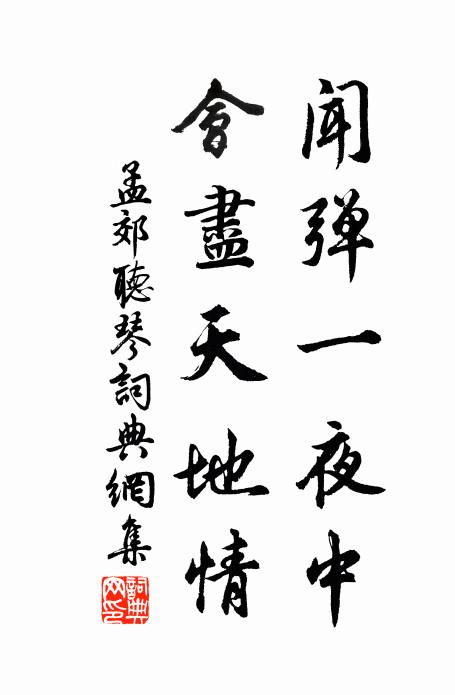 闻弹一夜中
會盡天地情
孟郊聽琴詞典網集
詞典网印